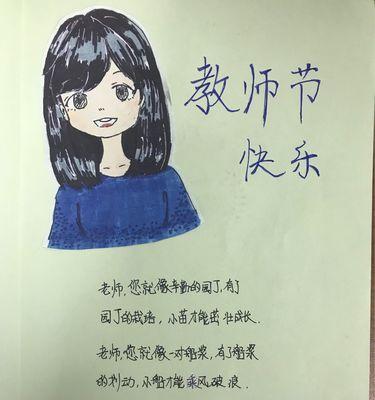 教师节
快乐
老师,您就像辛勤的园丁,有了
园丁的栽培,小苗才能茁壮成长.
老师,您就像一对船桨,有了船桨
的划动,小船才能乘风破浪.